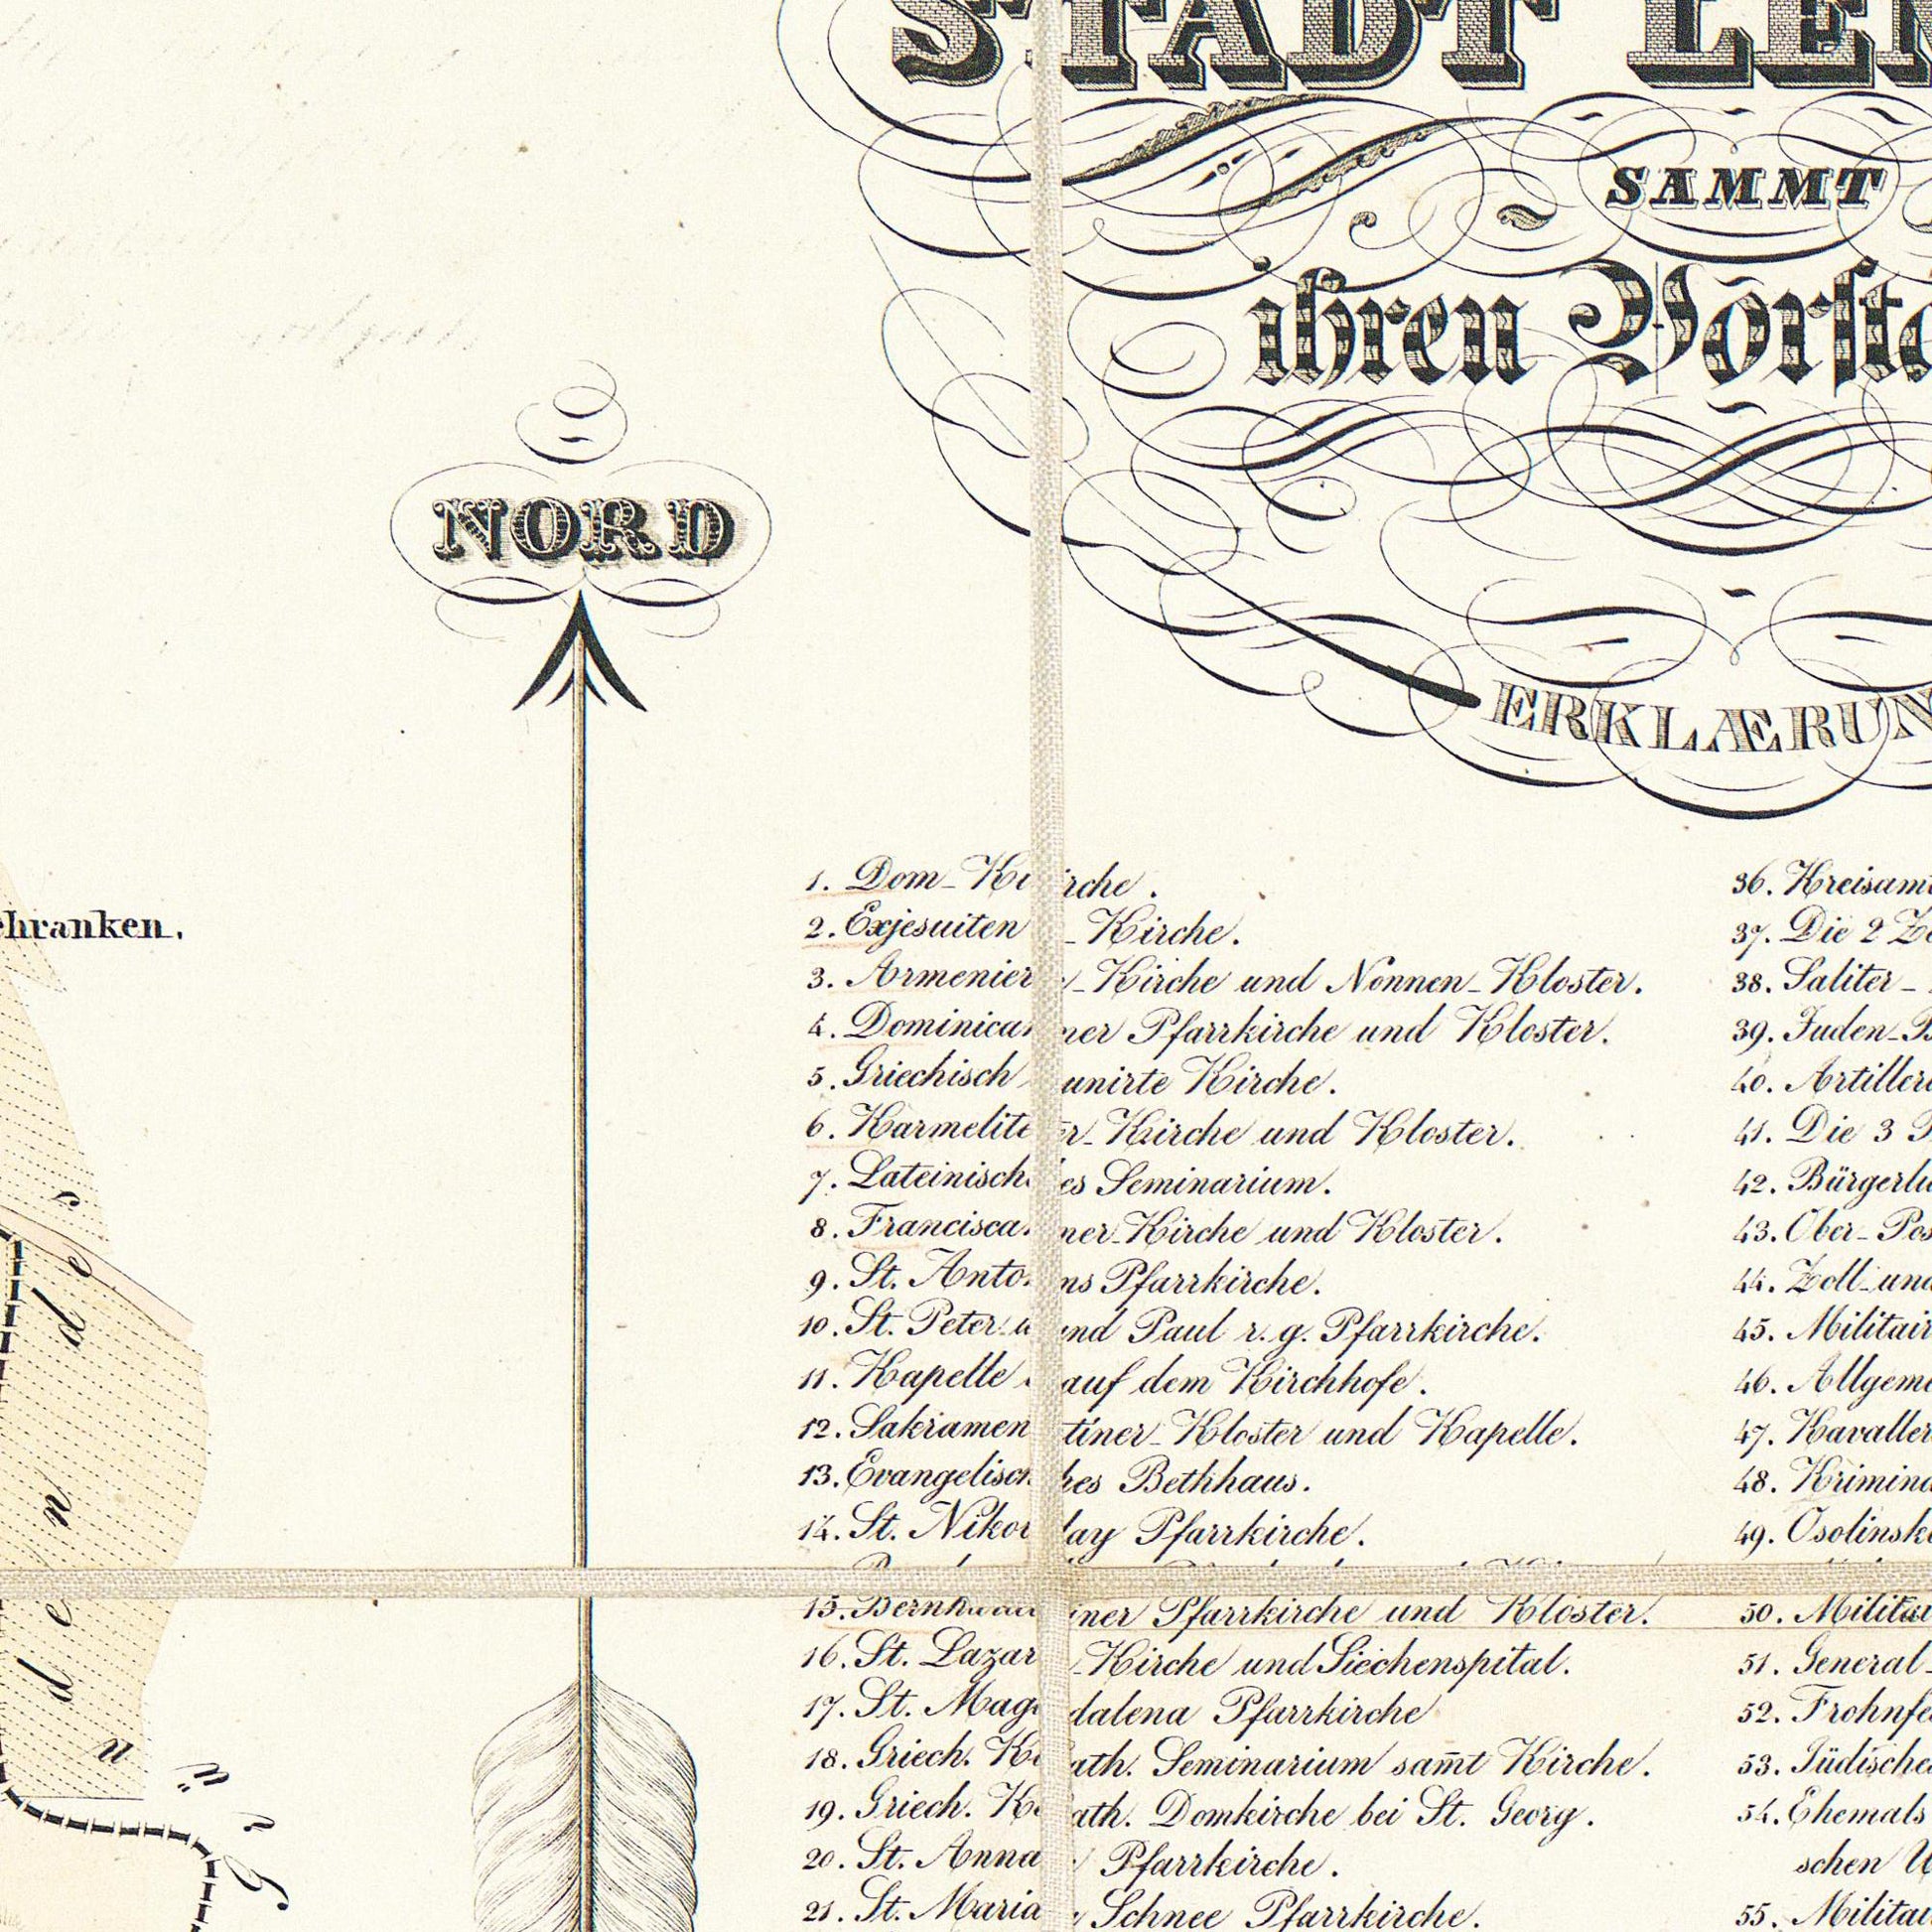 STADT
SAMMT
ihren
NORD
chranken.
1. Dom-Kirche.
2. Exjesuiten-Kirche.
3. Armenier-Kirche und Nonnen-Kloster.
4. Dominicaner Pfarrkirche und Kloster.
5. Griechisch unirte Kirche.
6. Karmeliter-Kirche und Kloster.
7. Lateinisches Seminarium.
8. Franciscaner-Kirche und Kloster.
9. St. Antons Pfarrkirche.
10. St. Peter und Paul r. g. Pfarrkirche.
11. Kapelle auf dem Kirchhofe.
12. Sakramentiner-Kloster und Kapelle.
13. Evangelisches Bethhaus.
14. St. Nikolay Pfarrkirche.
15. Bernhardiner Pfarrkirche und Kloster.
16. St. Lazar-Kirche und Siechenspital.
17. St. Magdalena Pfarrkirche
18. Griech. Kath. Seminarium sam̄t Kirche.
19. Griech. Kath. Domkirche bei St. Georg.
20. St. Anna Pfarrkirche.
21. St. Maria Schnee Pfarrkirche.
36. Kreisam
37. Die 2
38. Saliter-
39. Juden-
40. Artiller
41. Die 3
42. Bürgerli
43. Ober-Pos
44. Zoll-und
45. Militair
46. Allgeme
47. Kavaller
48. Krimina
49. Osolinsk
50. Militai
51. General-
52. Frohnfe
53. Jüdische
54. Ehemals
schen
55. Milita